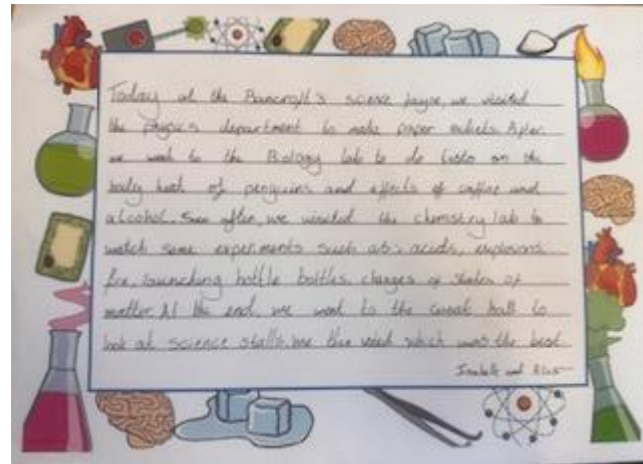 Today at the Bancroft's science fayre, we visited
the Physics department to make paper rockets. After
we went to the Biology lab to do tests on the
body heat of penguins and effects of caffine and
alcohol. Soon after, we visited the chemistry lab to
watch some experiments such as: acids, explosions
fire, launching bottle bottles, changes of states of
matter. At the end, we went to the Great hall to
look at science stalls. We then voted which was the best
and